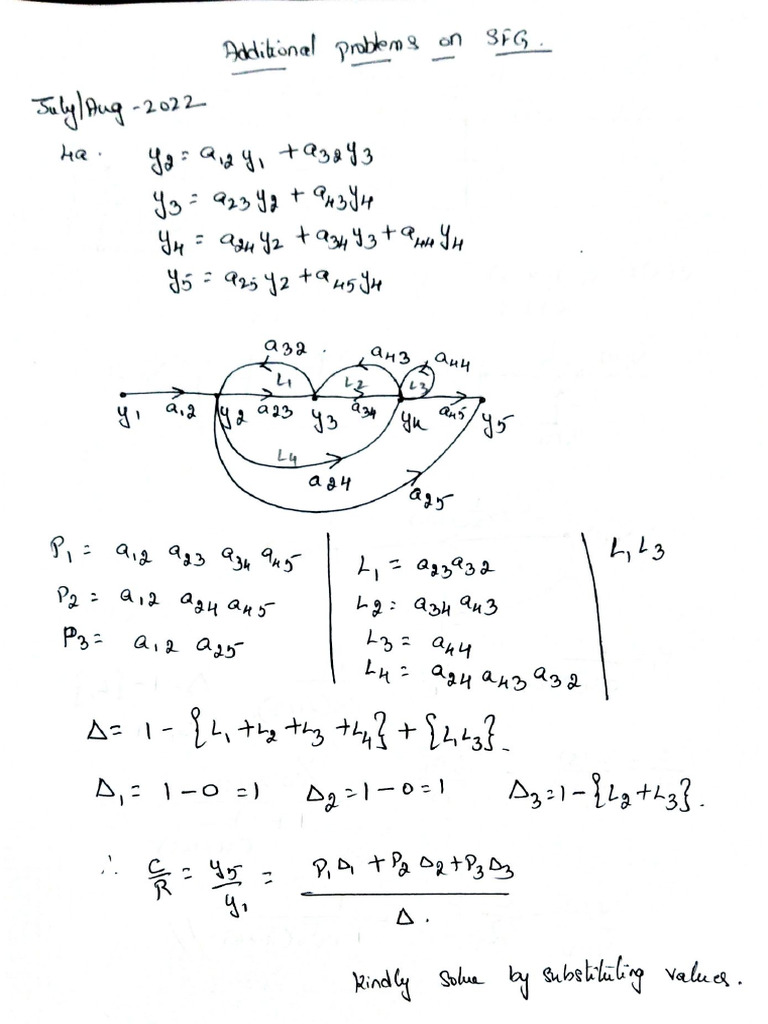 Additional problems on SFG.
July/Aug-2022
4a. y2 = a12 y1 + a32 y3
y3 = a23 y2 + a43 y4
y4 = a24 y2 + a34 y3 + a44 y4
y5 = a25 y2 + a45 y4
a32 a43 a44
L1 L2 L3
y1 a12 y2 a23 y3 a34 y4 a45 y5
L4
a24
a25
P1 = a12 a23 a34 a45
P2 = a12 a24 a45
P3 = a12 a25
L1 = a23 a32
L2 = a34 a43
L3 = a44
L4 = a24 a43 a32
L1 L3
Δ = 1 - {L1 + L2 + L3 + L4} + {L1L3}
Δ1 = 1 - 0 = 1 Δ2 = 1 - 0 = 1 Δ3 = 1 - {L2 + L3}.
∴ C/R = y5/y1 = P1 Δ1 + P2 Δ2 + P3 Δ3 / Δ.
kindly solve by substituting values.